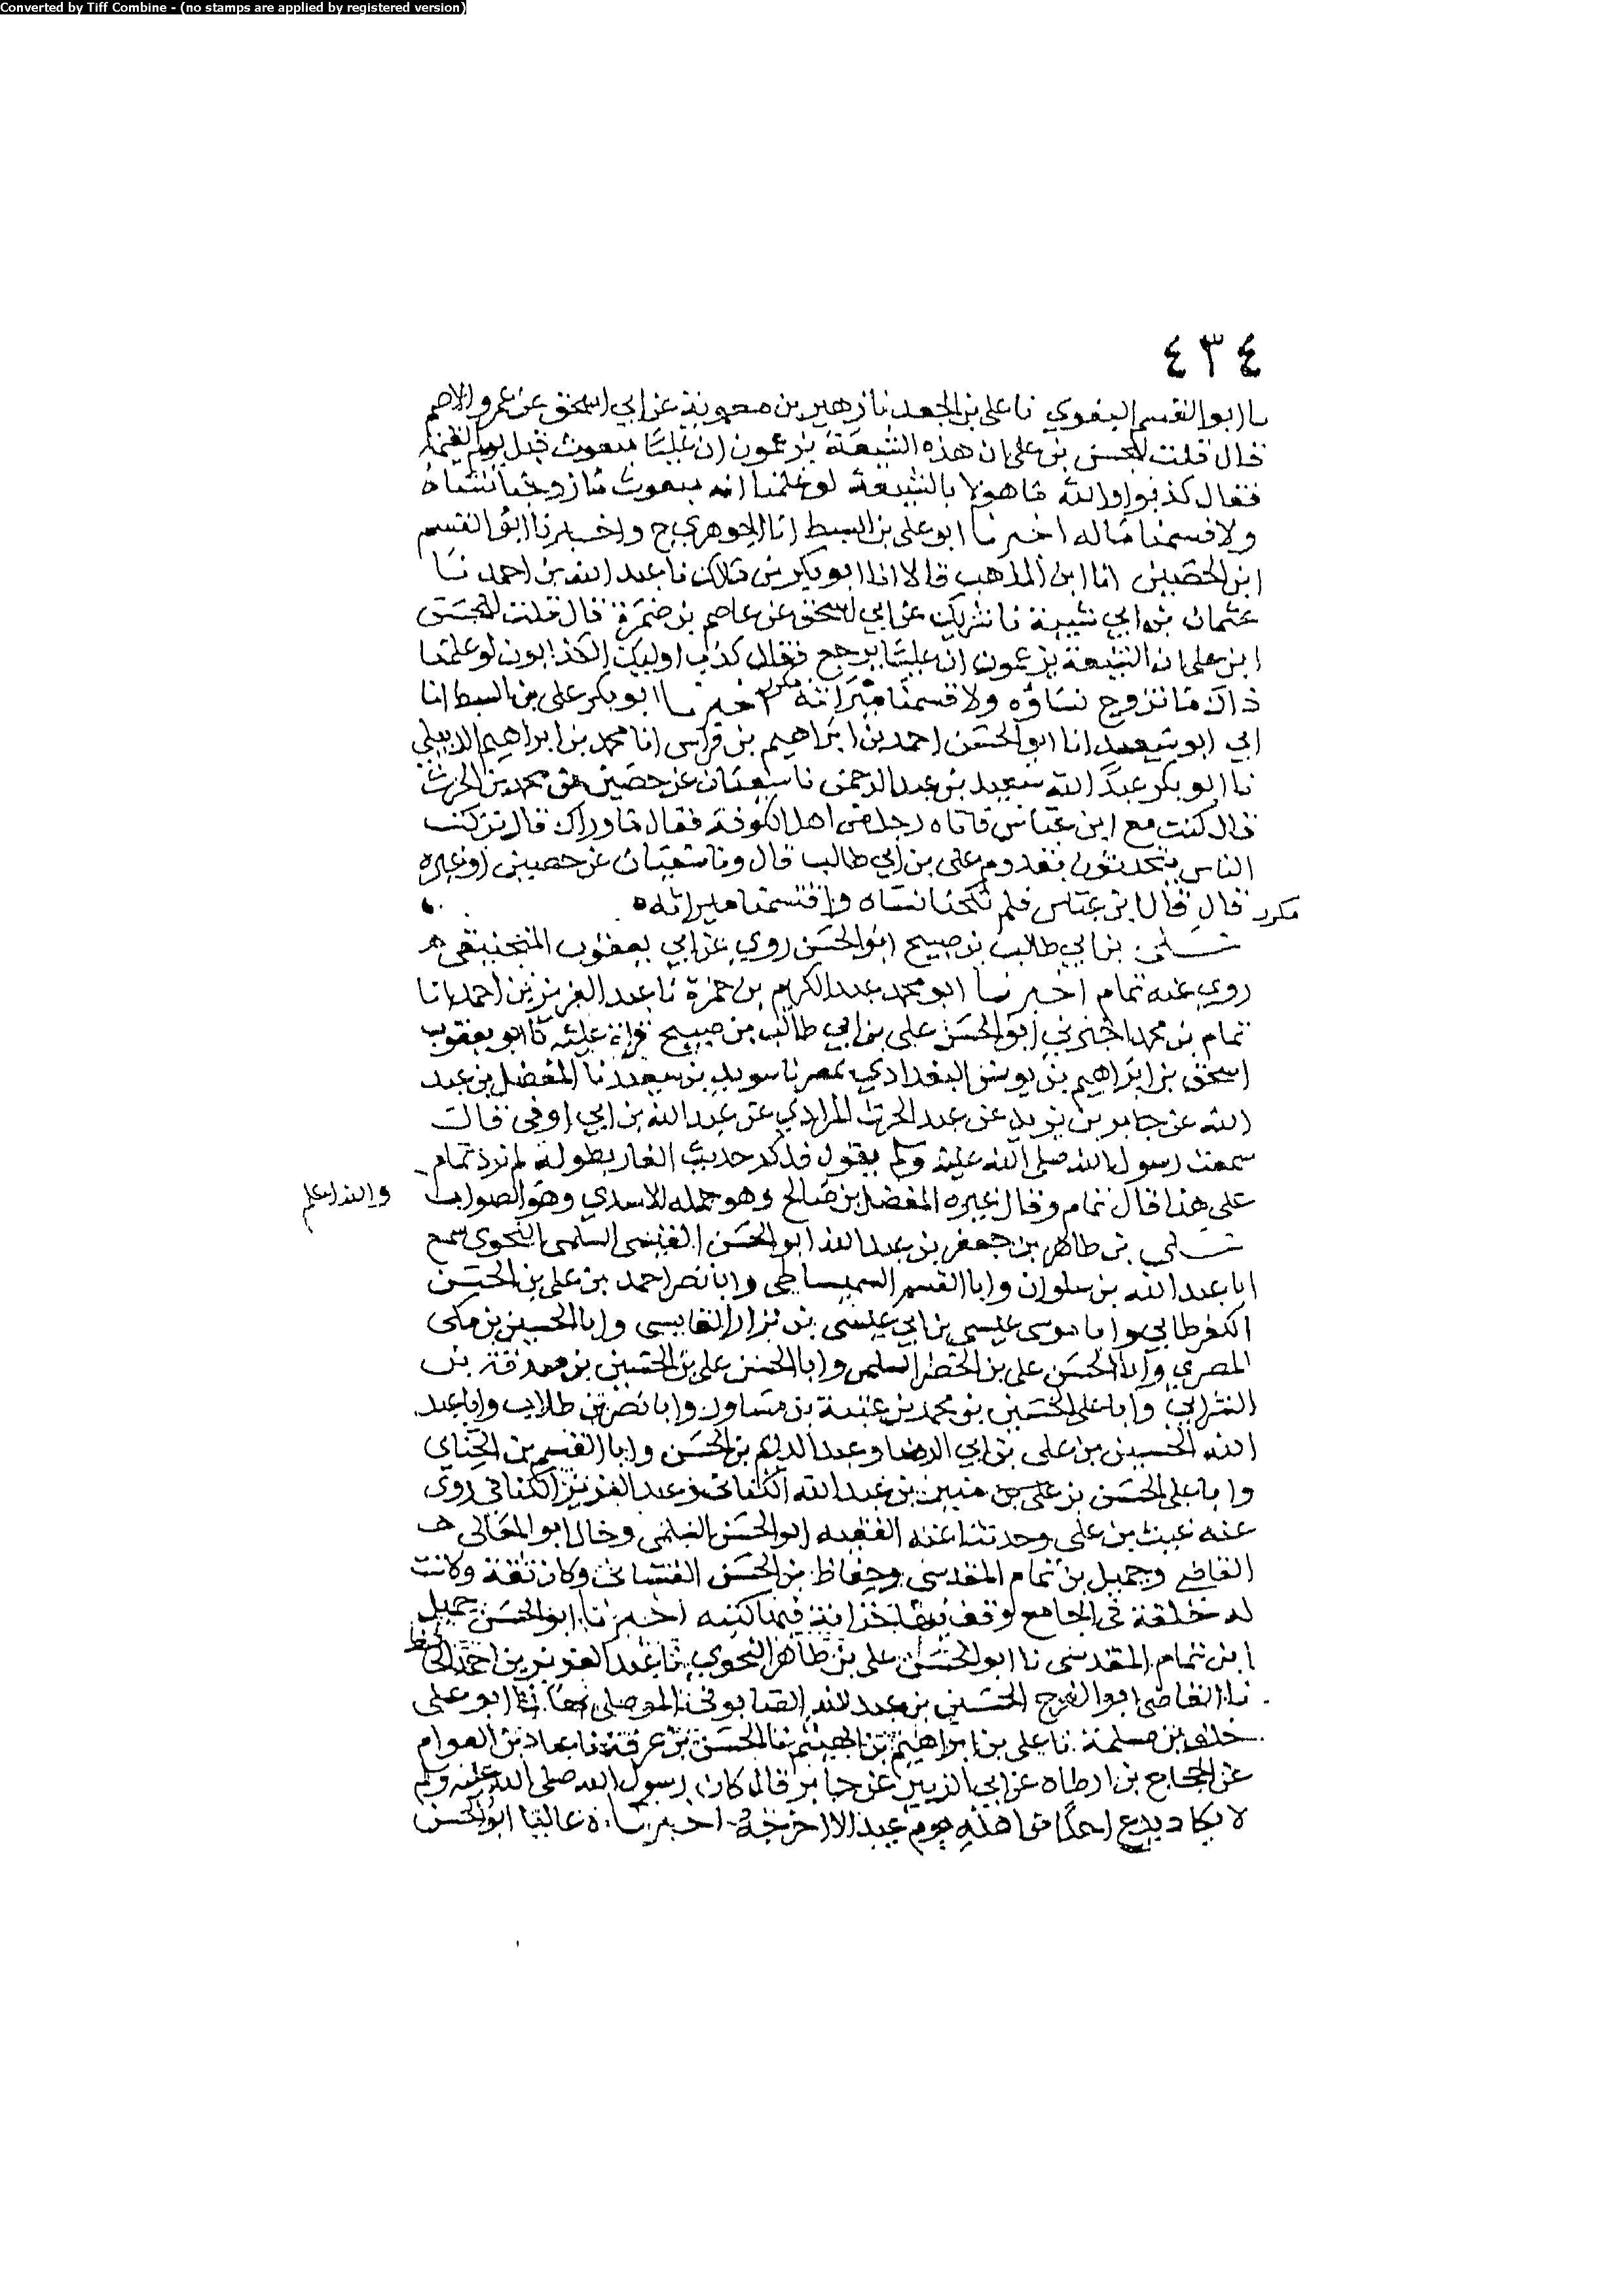 Converted by Tiff Combine - (no stamps are applied by registered version)
٤٣٤
نا ابو القسم البغوي نا على بن الجعد نا زهير بن معوية عن ابي اسحق عن عمرو الاصم
قال قلت للحسن بن على ان هذه الشيعة يزعمون ان عليا مبعوث قبل يوم القيمة
فقال كذبوا والله ما هولا بالشيعة لو علمنا انه مبعوث ما زوجنا نساه
ولا قسمنا ماله اخبرنا ابو على بن السبط انا الجوهري ح واخبرنا ابو القسم
ابن الحصين انا ابن المذهب قالا انا ابو بكر بن مالك نا عبد الله بن احمد نا
عثمان بن ابي شيبة نا شريك عن ابي اسحق عن عاصم بن ضمرة قال قلت للحسن
ابن على ان الشيعة يزعمون ان عليا يرجع فقال كذب اوليك الكذابون لو علمنا
ذاك ما تزوج نساؤه ولا قسمنا ميراثه مكرر اخبرنا ابو بكر على بن السبط انا
ابي ابو سعيد انا ابو الحسن احمد بن ابراهيم بن فراس انا محمد بن ابراهيم الديبلي
نا ابو بكر عبد الله سعيد بن عبد الرحمن نا سفيان عن حصين عن محمد بن الحرث
قال كنت مع ابن عباس فاتاه رجل من اهل الكوفة فقال ما وراك قال تركت
الناس يتحدثون بقدوم على بن ابي طالب قال ونا سفيان عن حصين او غيره
مكرر قال قال ابن عباس فلم نكحنا نساه واقتسمنا ميراثه ه
على بن ابي طالب بن صبيح ابو الحسن روي عن ابي يعقوب المنجنيقى ه
روي عنه تمام اخبرنا ابو محمد عبد الكريم بن حمزة نا عبد العزيز بن احمد انا
تمام بن محمد اخبرني ابو الحسن على بن ابي طالب بن صبيح قراة عليه نا ابو يعقوب
اسحق بن ابراهيم بن يونس البغدادي بمصر نا سويد بن سعيد نا المفضل بن عبد
الله عن جابر بن يزيد عن عبد الحرث المرادي عن عبد الله بن ابي اوفى قال
سمعت رسول الله صلى الله عليه وسلم يقول فذكر حديث الغار بطوله لم نزد تمام
على هذا قال تمام وقال غيره المفضل بن صالح وهو جمله الاسدي وهو الصواب والله اعلم
على بن طاهر بن جعفر بن عبد الله ابو الحسن القيسى السلمى النحوى سمع
ابا عبد الله بن سلوان وابا القسم السميساطى وابا نصر احمد بن على بن الحسن
الكفرطابي وابا موسى عيسى بن ابي عيسى بن نزار القابسى وابا الحسين بن مكى
المصري وابا الحسن على بن الخضر السلمى وابا الحسن على بن الحسين بن صدقة بن
الشرابي وابا على الحسين بن محمد بن عتبة بن مساور وابا نصر بن طلاب وابا عبد
الله الحسين بن على بن ابي الرضا وعبد الدايم بن الحسن وابا القسم بن الحناي
وابا على الحسن بن على بن منير بن عبد الله الكناني وعبد العزيز الكناني روى
عنه غيث بن على وحدثنا عنه الفقيه ابو الحسن السلمى وخال ابو المعالى ه
القاضى وجميل بن تمام المقدسى وحفاظ بن الحسن الغسانى وكان ثقة وكانت
له حلقة فى الجامع وقف بها خزانة فيها كتبه اخبرنا ابو الحسن جميل
ابن تمام المقدسى نا ابو الحسن على بن طاهر النحوي نا عبد العزيز بن احمد الحافظ
نا القاضى ابو الفرج الحسين بن عبد الله الصابونى الموصلى بها نا ابو على
خلف بن مسلمة نا على بن ابراهيم بن الهيثم نا الحسن بن عرفة نا عباد بن العوام
عن الحجاج بن ارطاه عن ابي الزبير عن جابر قال كان رسول الله صلى الله عليه وسلم
لا يكاد يدع احدا من اهله يوم عيد الا اخرجه اخبرناه عاليا ابو الحسن